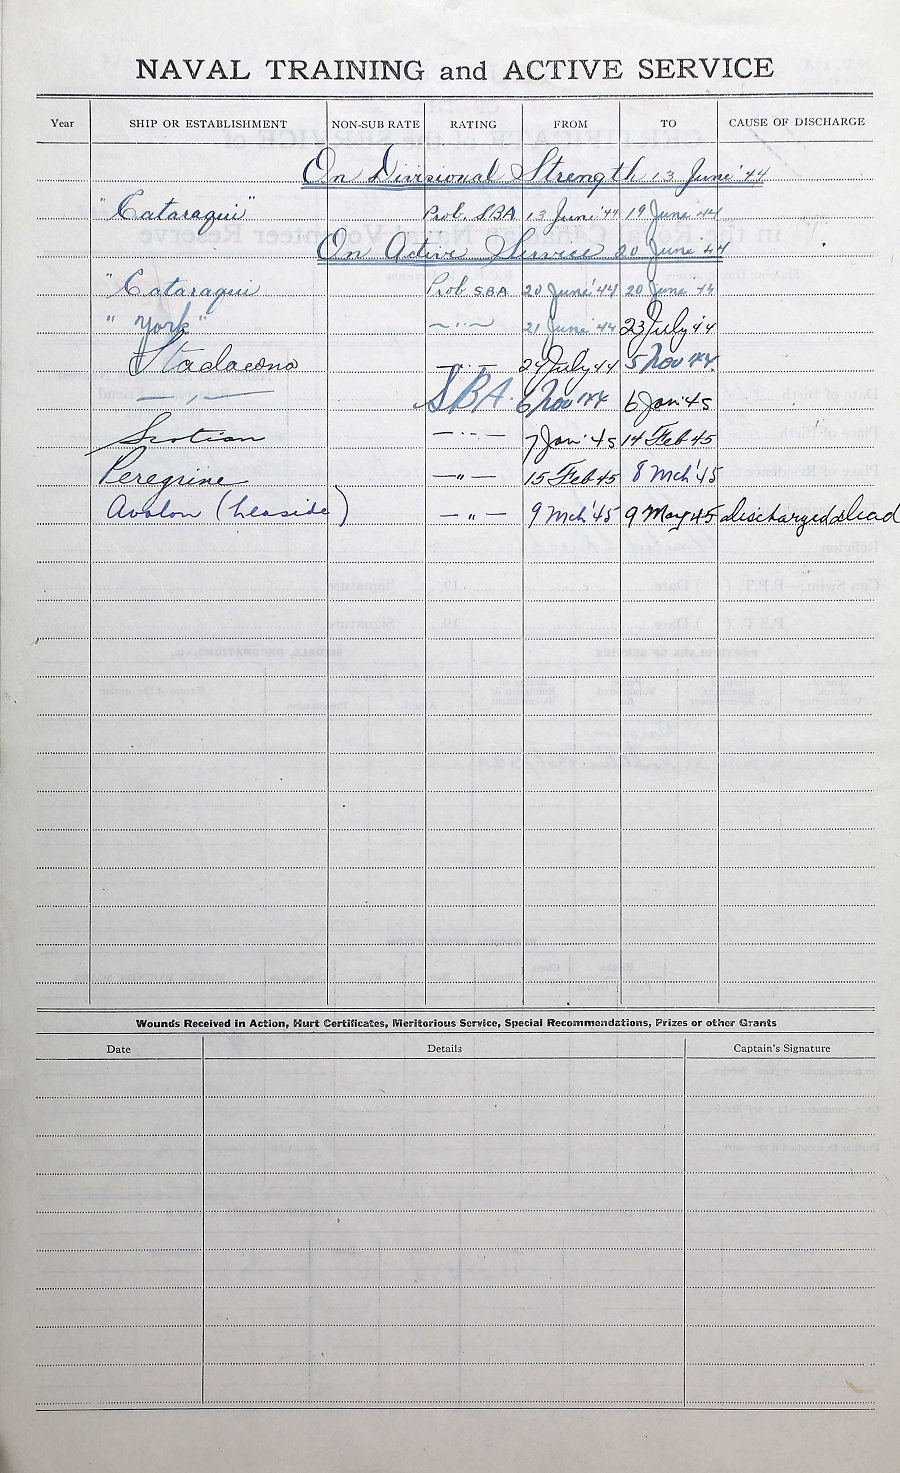 NAVAL TRAINING and ACTIVE SERVICE
Year SHIP OR ESTABLISHMENT NON-SUB RATE RATING FROM TO CAUSE OF DISCHARGE
On Divisional Strength 13 June '44
"Cataraqui" Prob. SBA 13 June '44 19 June 44
On Active Service 20 June 44
"Cataraqui Prob SBA 20 June '44 20 June 44
" York " — " — 21 June '44 23 July '44
Stadacona — " — 24 July 44 5 Nov '44
— " — SBA. 6 Nov '44 6 Jan '45
Scotian — " — 7 Jan '45 14 Feb 45
Peregrine — " — 15 Feb 45 8 Mch '45
Avalon (Leaside) — " — 9 Mch '45 9 May 45 discharged dead
Wounds Received in Action, Hurt Certificates, Meritorious Service, Special Recommendations, Prizes or other Grants
Date Details Captain's Signature